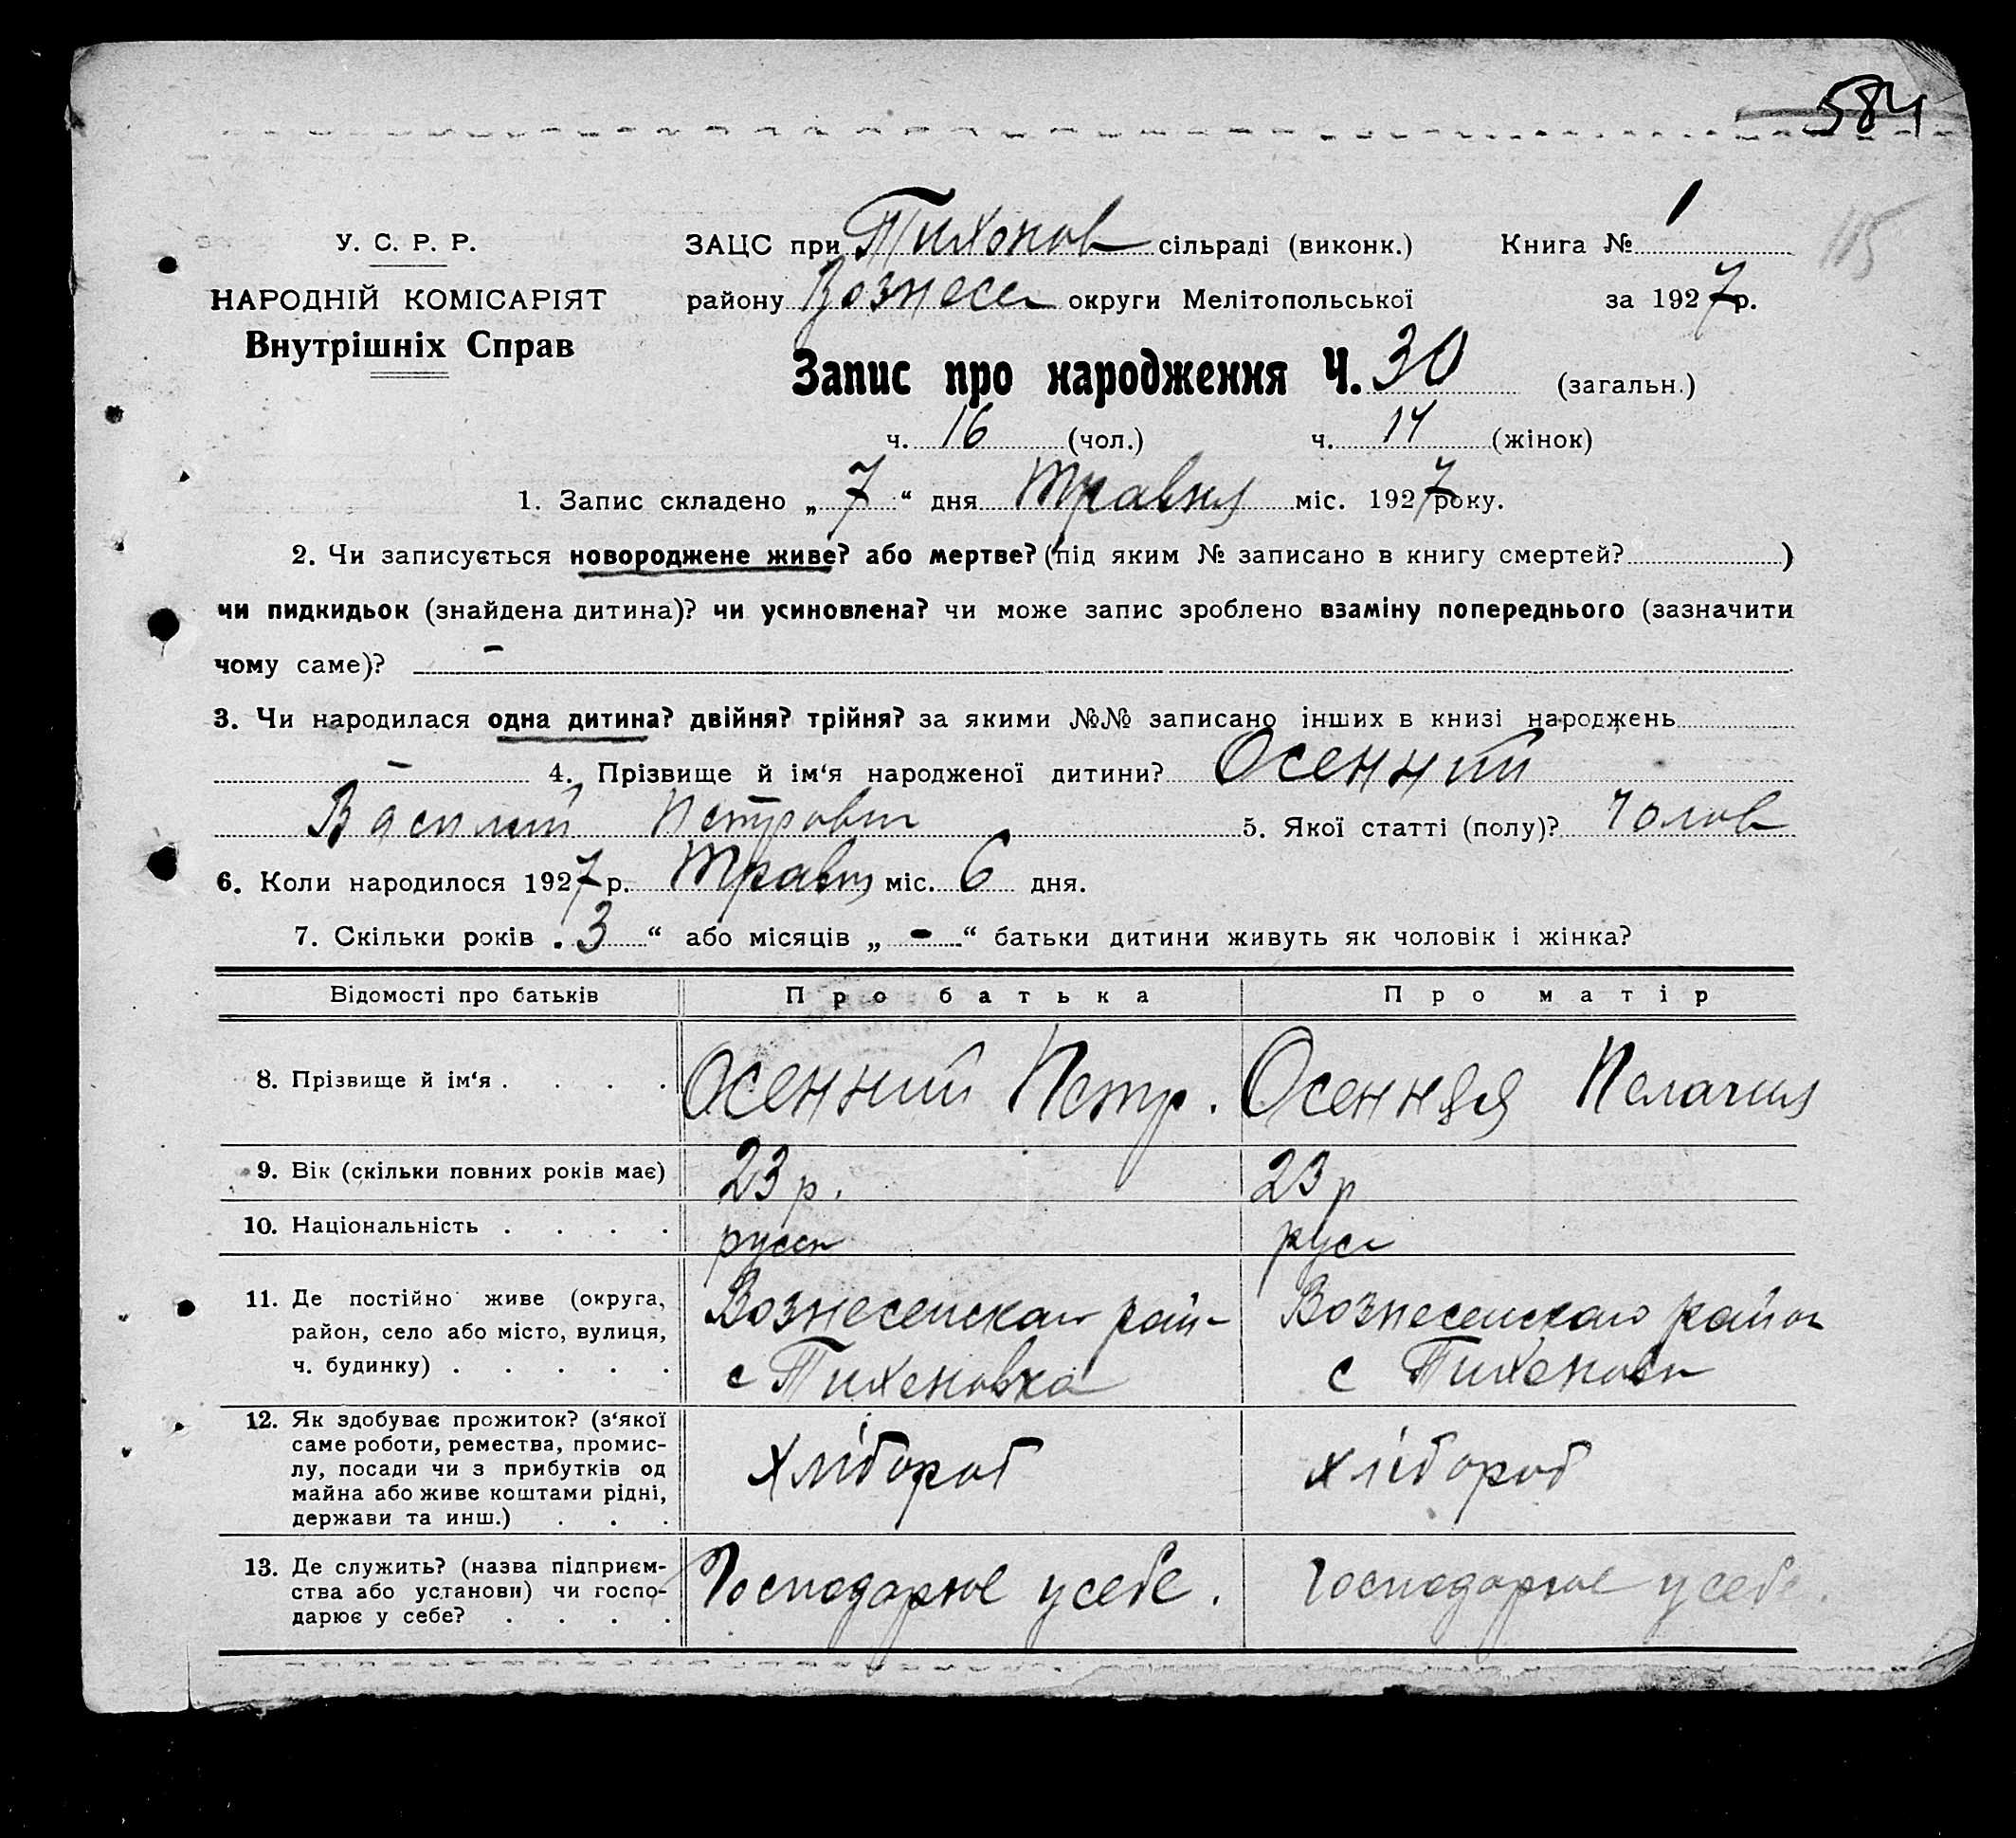 584
У. С. Р. Р.
НАРОДНІЙ КОМІСАРІЯТ
Внутрішніх Справ
ЗАЦС при Тихонов сільраді (виконк.) Книга № 1
105
району Вознесен округи Мелітопольської за 1927 р.
Запис про народження Ч. 30 (загальн.)
ч. 16 (чол.) ч. 14 (жінок)
1. Запис складено „ 7 “ дня Травня міс. 1927 року.
2. Чи записується новороджене живе? або мертве? (під яким № записано в книгу смертей? )
чи пидкидьок (знайдена дитина)? чи усиновлена? чи може запис зроблено взаміну попереднього (зазначити
чому саме)? –
3. Чи народилася одна дитина? двійня? трійня? за якими №№ записано інших в книзі народжень
– 4. Прізвище й ім‘я народженої дитини? Осенний
Василий Петрович 5. Якої статті (полу)? Чолов
6. Коли народилося 1927 р. Травня міс. 6 дня.
7. Скільки років „ 3 “ або місяців „ - “ батьки дитини живуть як чоловік і жінка?
Відомості про батьків Про батька Про матір
8. Прізвище й ім‘я . . . . Осенний Петр. Осенняя Пелагия
9. Вік (скільки повних років має) 23 р. 23 р
10. Національність . . . . русск рус
11. Де постійно живе (округа, Вознесенскаго рай- Вознесенскаго район
район, село або місто, вулиця, с Тихоновка с Тихоновк
ч. будинку) . . . . .
12. Як здобуває прожиток? (з‘якої
саме роботи, ремества, промис-
лу, посади чи з прибутків од хлібороб хлібороб
майна або живе коштами рідні,
держави та инш.) . . .
13. Де служить? (назва підприєм- Господарює у себе. Господарює у себе.
ства або установи) чи госпо-
дарює у себе? . . . .